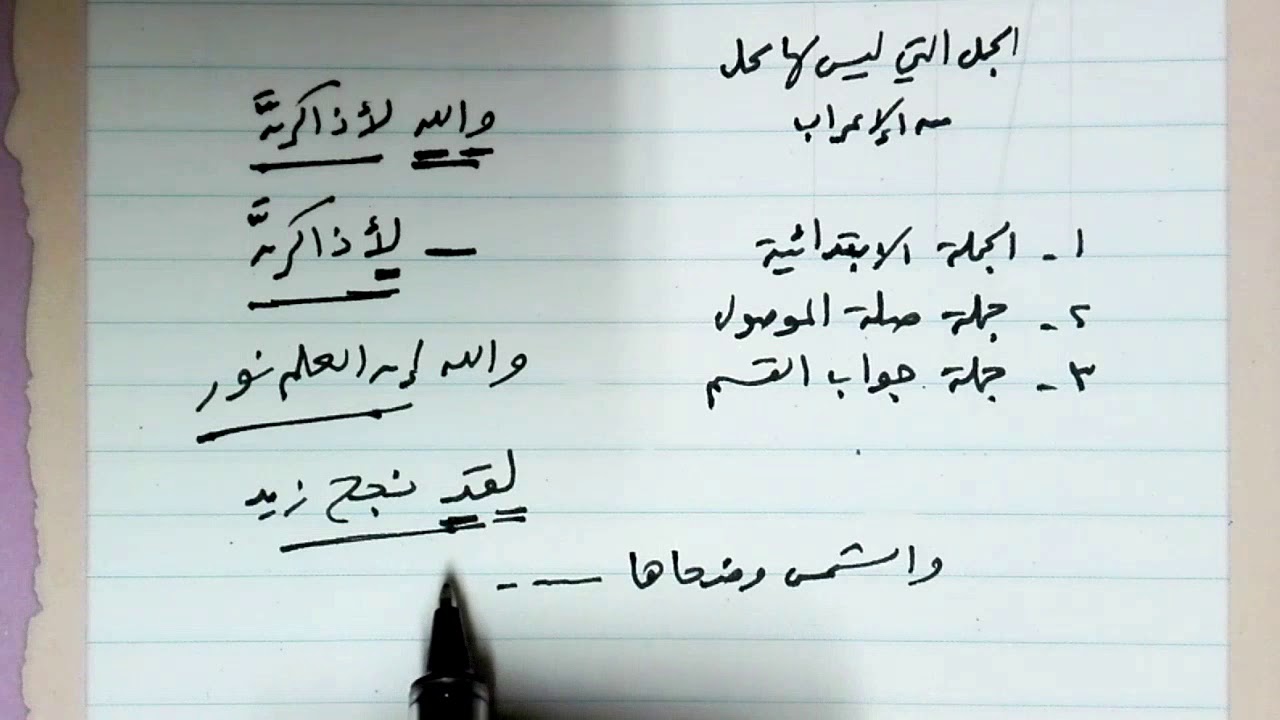 الجمل التي ليس لها محل
من الإعراب
١ - الجملة الابتدائية
٢ - جملة صلة الموصول
٣ - جملة جواب القسم
والله لأذاكرنَّ
– لأذاكرنَّ
والله إن العلم نور
لقد نجح زيد
والشمس وضحاها — -